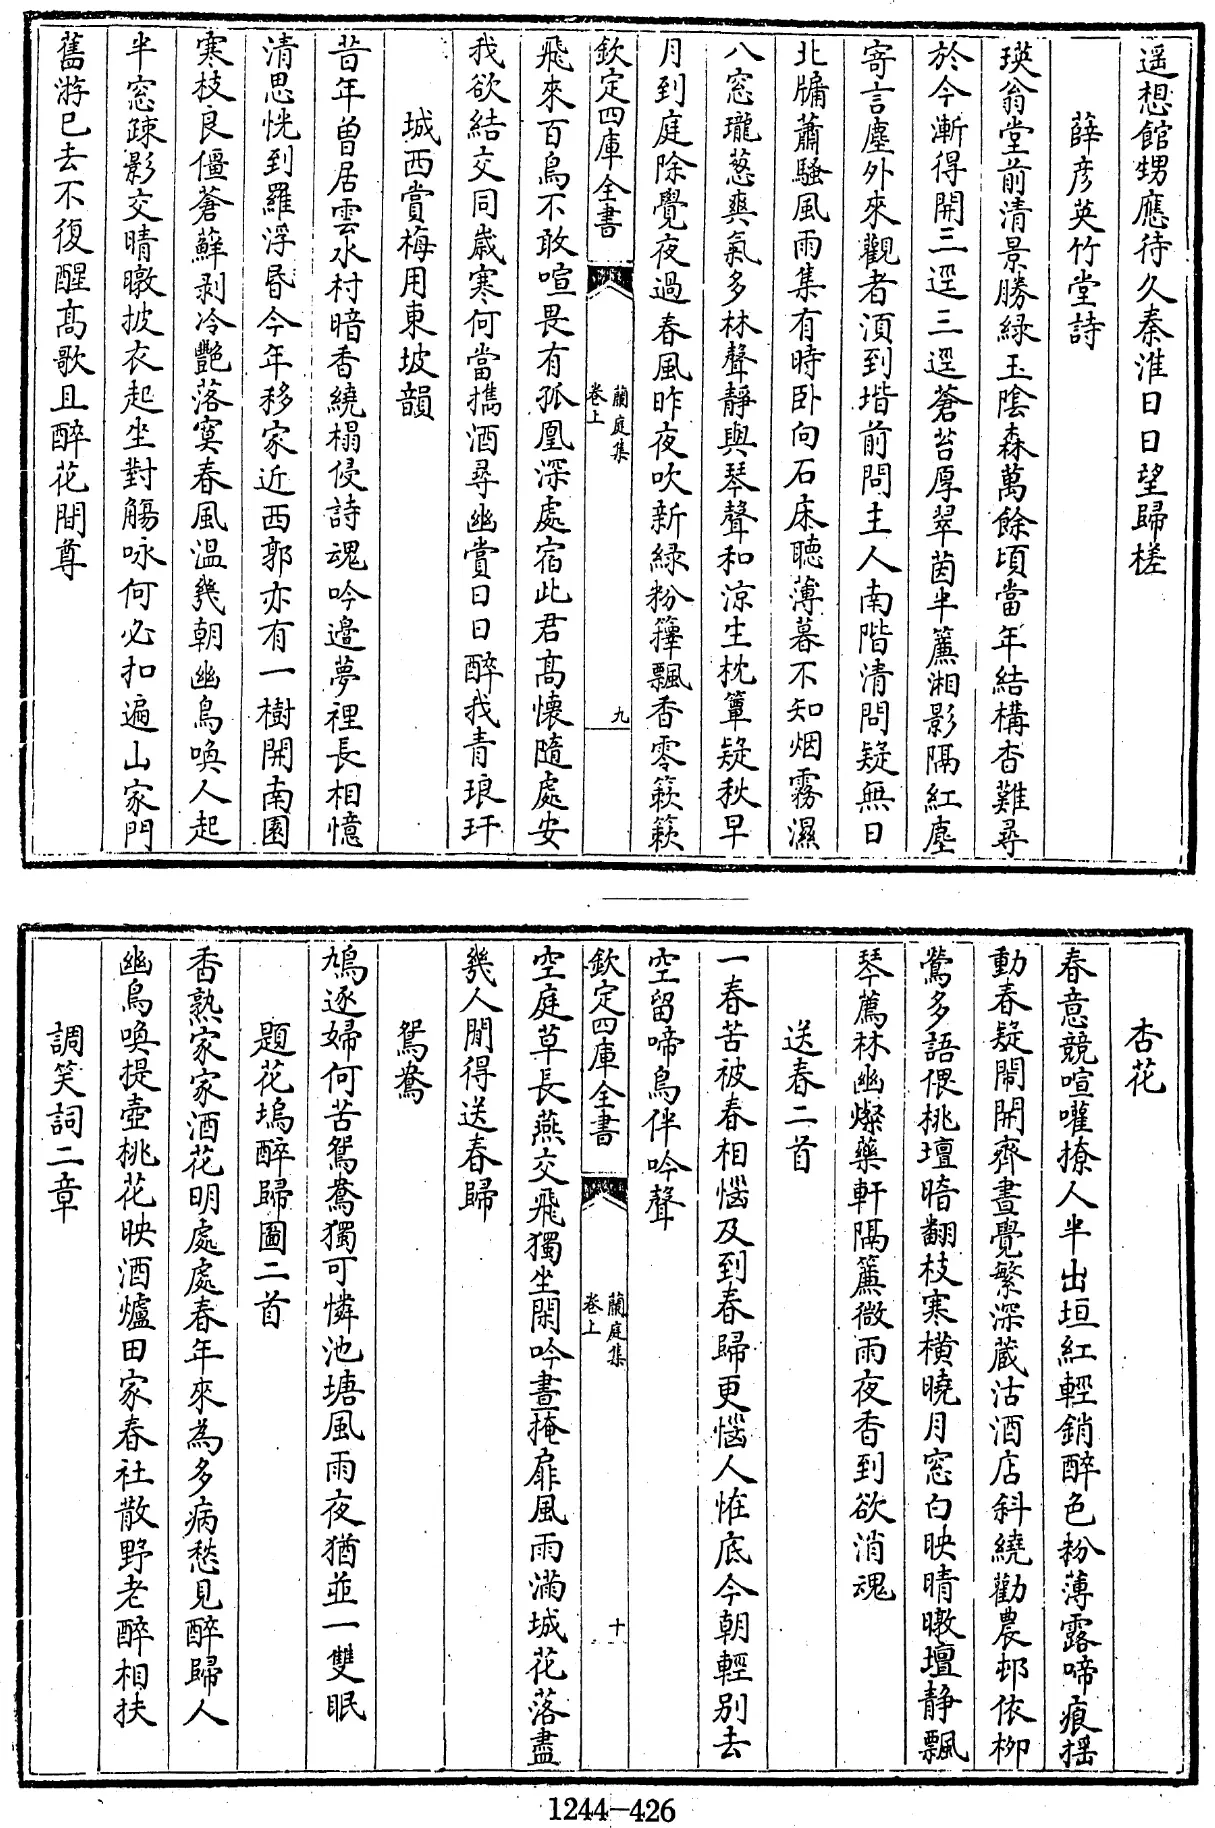 遥想館甥應待久秦淮日日望歸槎
薛彦英竹堂詩
瑛翁堂前清景勝綠玉陰森萬餘頃當年結構杳難尋
於今漸得開三逕三逕蒼苔厚翠茵半簾湘影隔紅塵
寄言塵外來觀者湏到堦前問主人南階清閟疑無日
北牖蕭騷風雨集有時卧向石床聽薄暮不知烟霧濕
八窓瓏葱爽氣多林聲靜與琴聲和涼生枕簟疑秋早
月到庭除覺夜過春風昨夜吹新綠粉籜飄香零簌簌
欽定四庫全書
蘭庭集
卷上
九
飛來百鳥不敢喧畏有孤凰深處宿此君髙懷隨處安
我欲結交同歲寒何當攜酒尋幽賞日日醉我青琅玕
城西賞梅用東坡韻
昔年曽居雲水村暗香繞榻侵詩魂吟邉夢裡長相憶
清思恍到羅浮昏今年移家近西郭亦有一樹開南園
寒枝良僵蒼蘚剥冷艷落寞春風温幾朝幽鳥喚人起
半窓疎影交晴暾披衣起坐對觴咏何必扣遍山家門
舊游已去不復醒髙歌且醉花間尊
杏花
春意競喧嚾撩人半出垣紅輕銷醉色粉薄露啼痕揺
動春疑鬧開齊晝覺繁深蔵沽酒店斜繞勸農邨依栁
鶯多語偎桃壇暗翻枝寒横曉月窓白映晴暾壇静飄
琴薦林幽燦藥軒隔簾微雨夜香到欲消魂
送春二首
一春苦被春相惱及到春歸更惱人恠底今朝輕别去
空留啼鳥伴吟聲
欽定四庫全書
蘭庭集
卷上
十
空庭草長燕交飛獨坐閑吟晝掩扉風雨滿城花落盡
幾人閒得送春歸
鴛鴦
鳩逐婦何苦鴛鴦獨可憐池塘風雨夜猶並一雙眠
題花塢醉歸圖二首
香熟家家酒花明處處春年來為多病愁見醉歸人
幽鳥喚提壺桃花映酒爐田家春社散野老醉相扶
調笑詞二章
1244-426